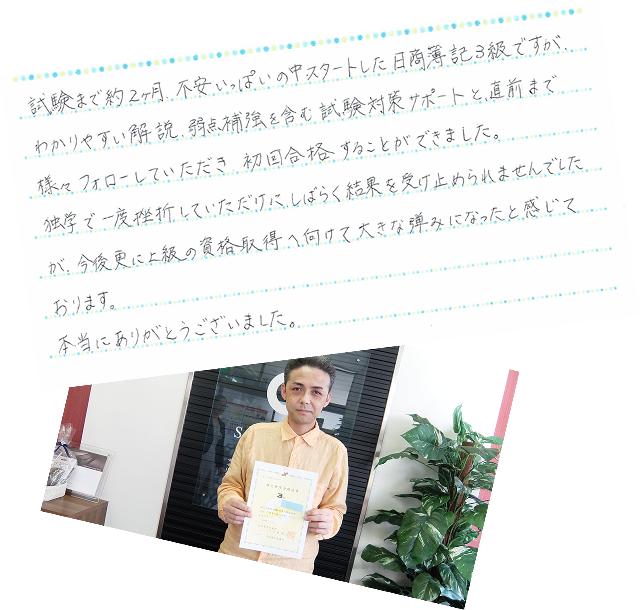 試験まで約2ヶ月、不安いっぱいの中スタートした日商簿記3級ですが、
わかりやすい解説、弱点補強を含む試験対策サポートと、直前まで
様々フォローしていただき、初回合格することができました。
独学で一度挫折していただけに、しばらく結果を受け止められませんでした
が、今後更に上級の資格取得へ向けて大きな弾みになったと感じて
おります。
本当にありがとうございました。